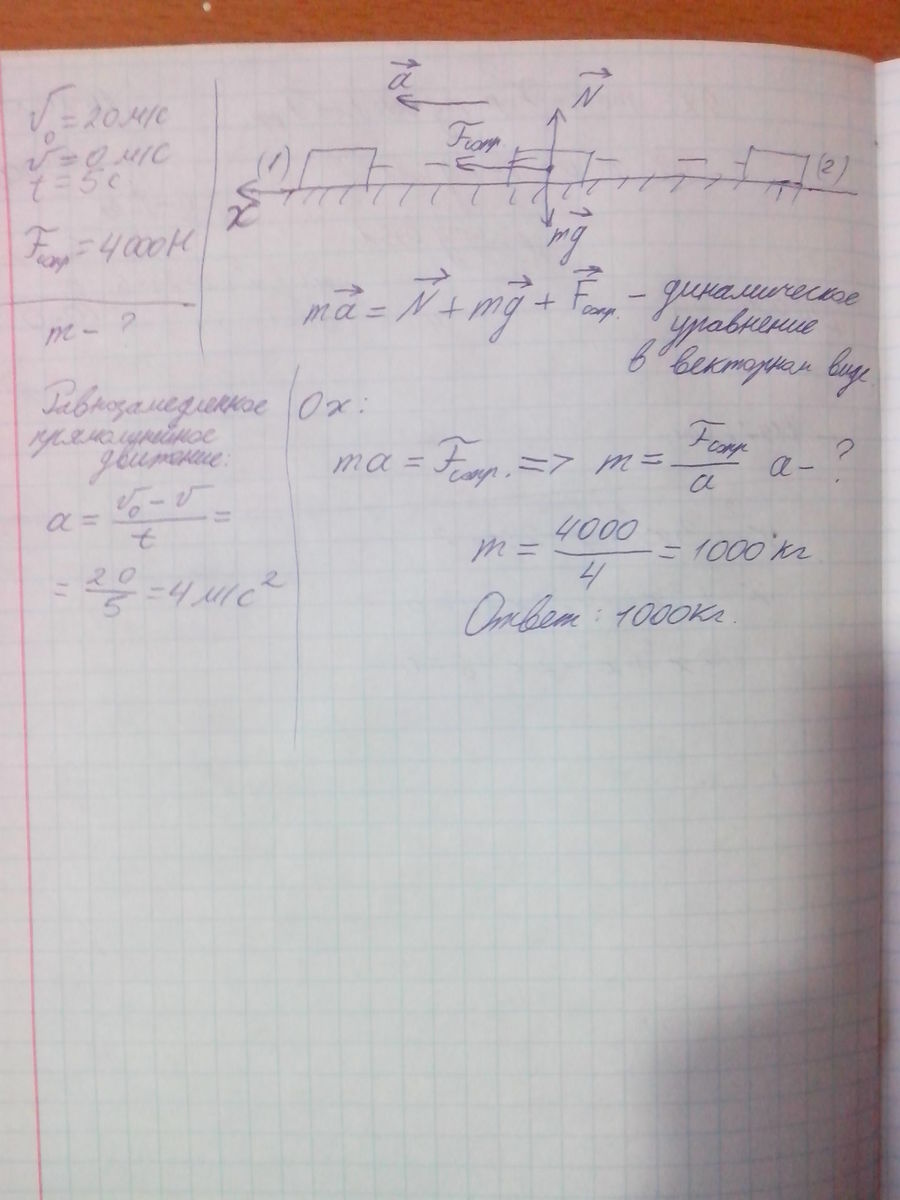 v₀ = 20 м/с
v = 0 м/с
t = 5 с
Fсопр = 4000 Н
m - ?
a⃗
N⃗
Fсопр
(1)
(2)
x
mg⃗
ma⃗ = N⃗ + mg⃗ + F⃗сопр. - динамическое
уравнение
в векторном виде
Равнозамедленное
прямолинейное
движение:
a = (v₀ - v)/t =
= 20/5 = 4 м/с²
Ox:
ma = Fсопр. => m = Fсопр/a a - ?
m = 4000/4 = 1000 кг
Ответ: 1000кг.